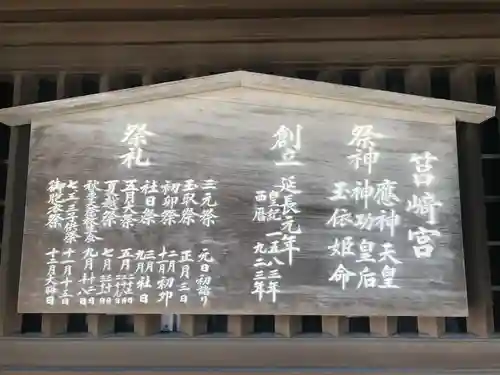 筥崎宮
祭神
應神天皇
神功皇后
玉依姫命
創立
延長元年
皇紀 一五八三年
西暦 九二三年
祭礼
三元祭 元日初詣り
玉取祭 正月三日
初卯祭 二月 十一月 初卯
社日祭 三月 九月 社日
五月大祭 五月
夏越祭 七月
秋季大祭放生会 九月
七五三子供祭 十一月十五日
御胞衣祭 十二月大晦日